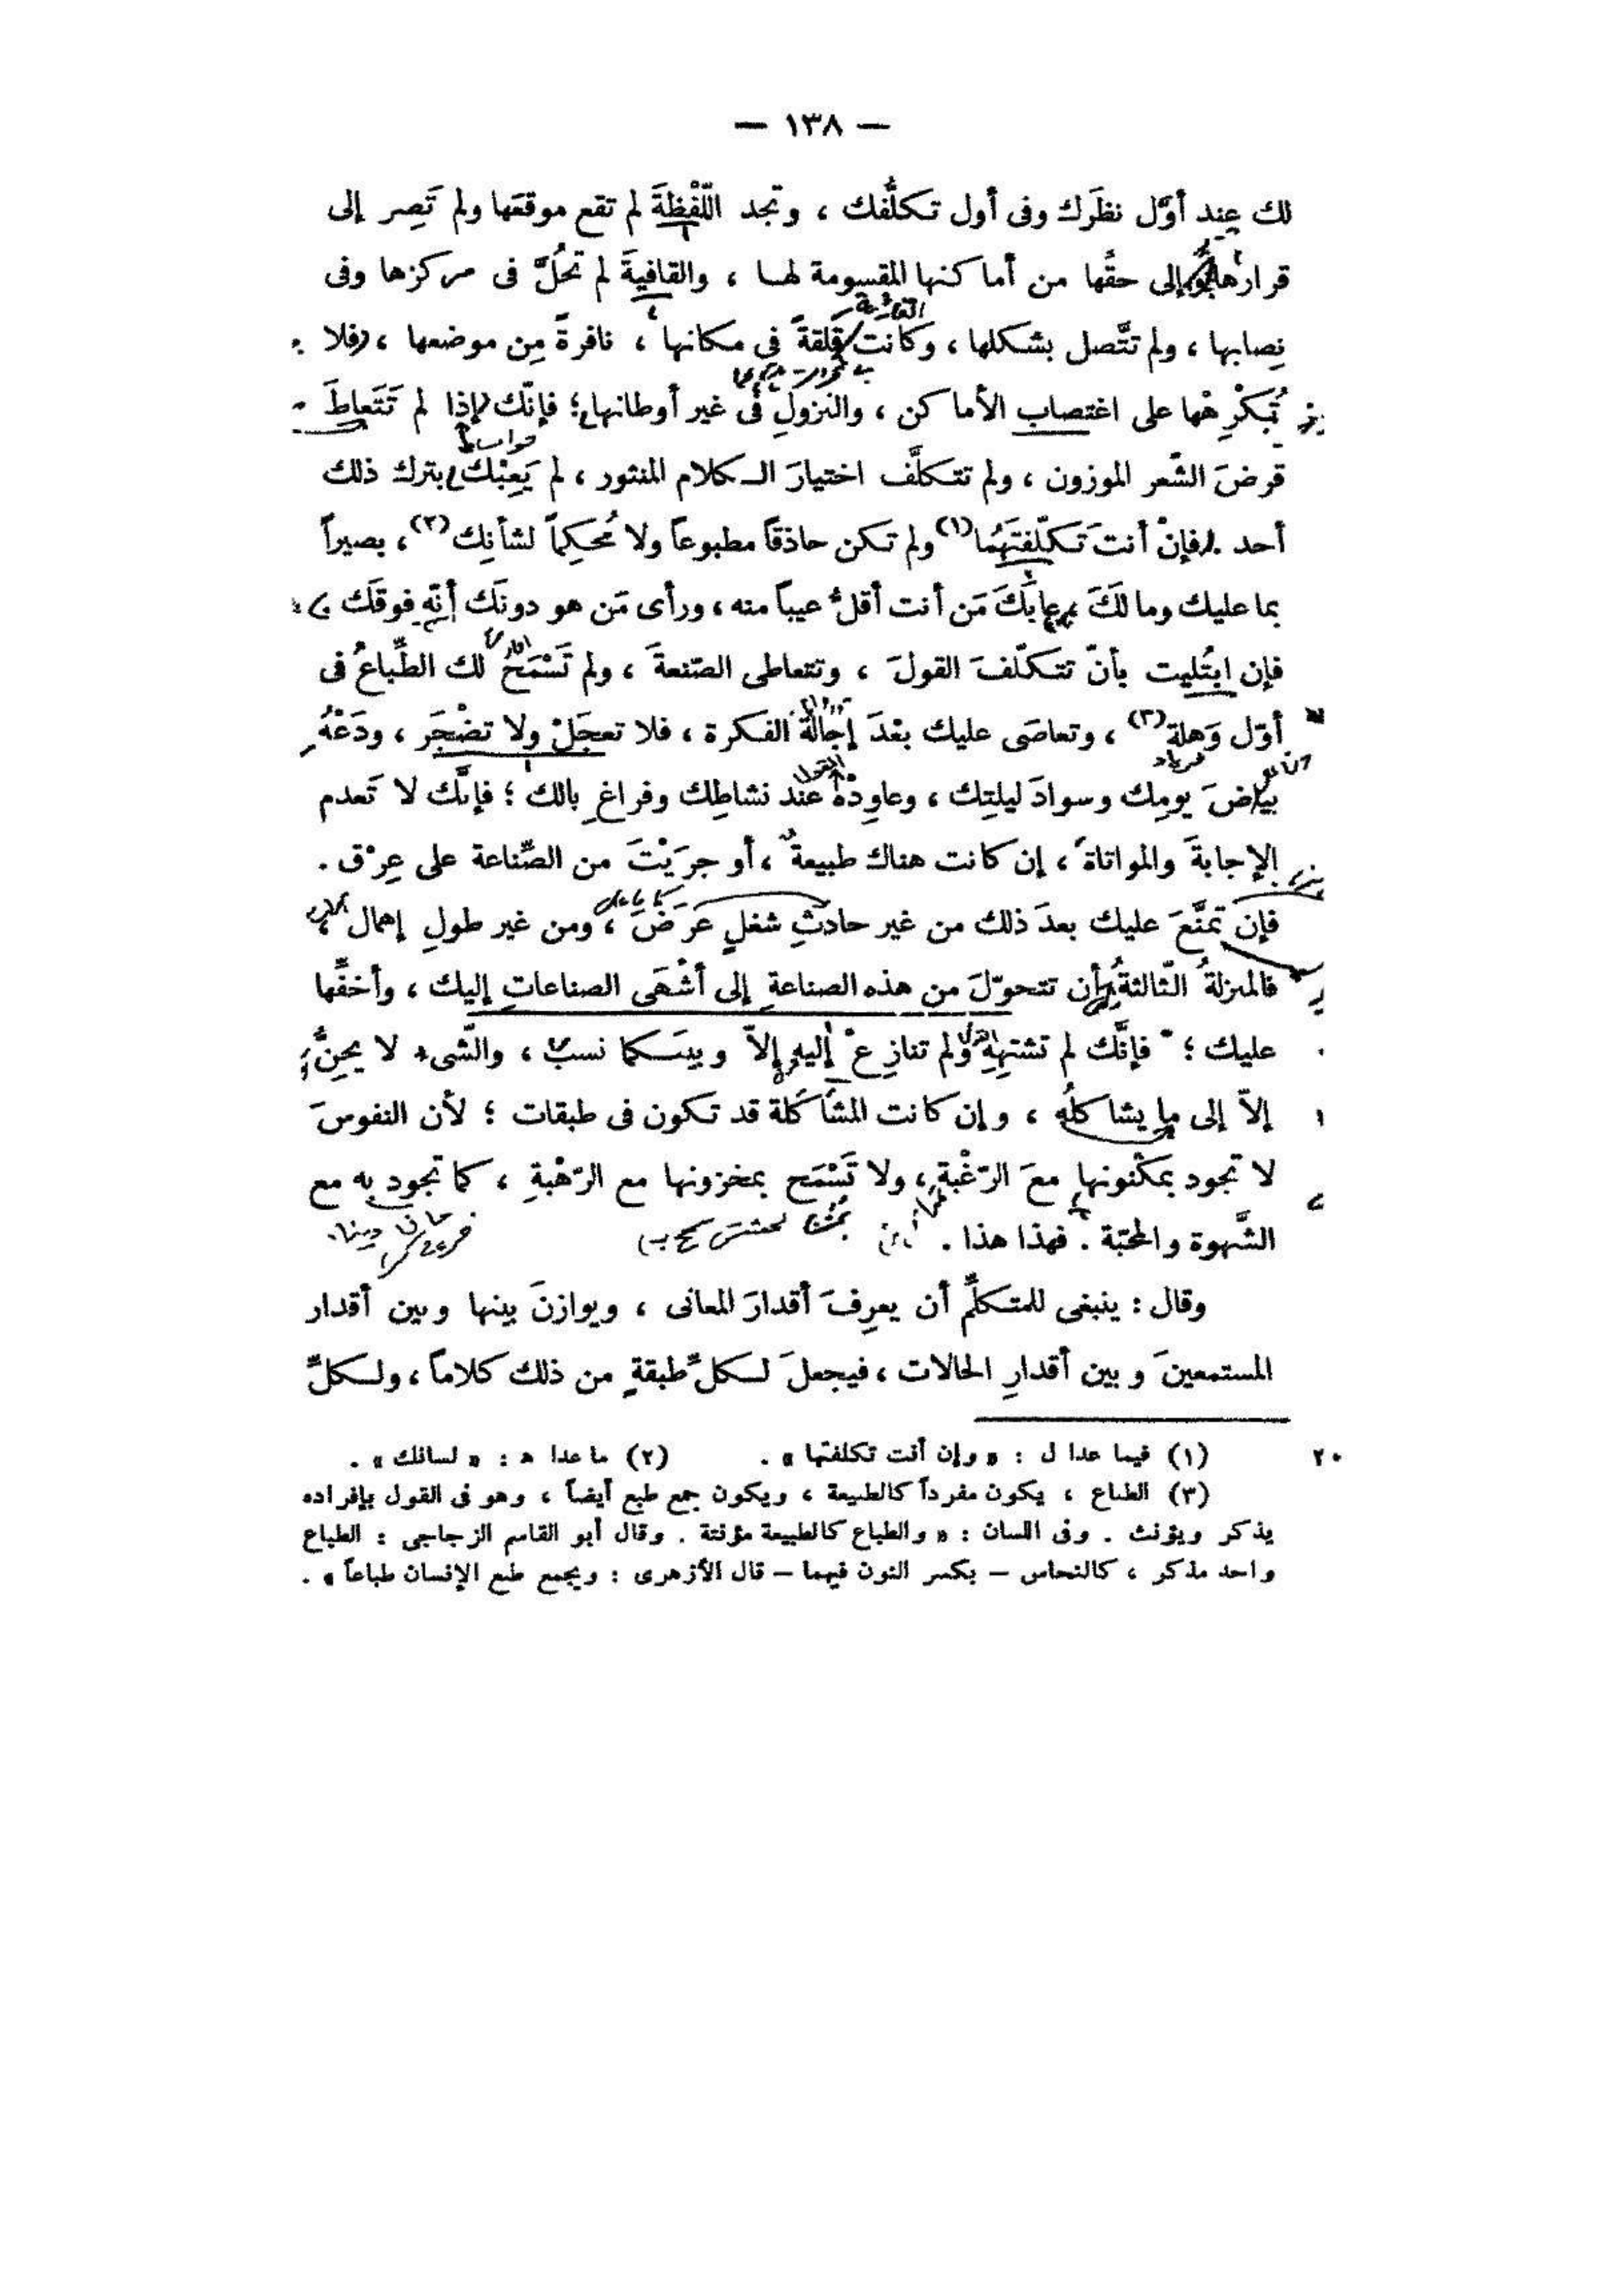 — ١٣٨ —
لك عِند أوّل نظَرك وفى أول تكلُّفك ، وتجد اللّفْظةَ لم تقع موقعَها ولم تَصِر إلى
قرارها وإلى حقِّها من أماكنها المقسومة لهـا ، والقافيةَ لم تحُلَّ فى مركزها وفى
نِصابها ، ولم تتَّصل بشكلها ، وكانت قلِقةً فى مكانها ، نافرةً مِن موضعها ، فلا
تُكْرِهْها على اغتصاب الأماكن ، والنزولِ فى غير أوطانها ؛ فإنّك إذا لم تَتَعاطَ
قرضَ الشّعر الموزون ، ولم تتكلَّف اختيارَ الـكلام المنثور ، لم يَعِبْك بترك ذلك
أحد . فإنْ أنتَ تَكلّفتَهُما (١) ولم تكن حاذقاً مطبوعاً ولا مُحكِماً لشأنِك (٢) ، بصيراً
بما عليك وما لَكَ عابَكَ مَن أنت أقلُّ عيباً منه ، ورأى مَن هو دونَك أنّه فوقَك .
فإن ابتُليت بأنْ تتكلّفَ القولَ ، وتتعاطى الصّنعةَ ، ولم تَسْمَحْ لك الطِّباعُ فى
أوّل وَهلة (٣) ، وتعاصَى عليك بعْدَ إجالة الفكرة ، فلا تعجَلْ ولا تضْجَر ، ودَعْهُ
بياضَ يومِك وسوادَ ليلتِك ، وعاوِدْه عند نشاطِك وفراغِ بالك ؛ فإنَّك لا تَعدم
الإجابةَ والمواتاة ، إن كانت هناك طبيعةٌ ، أو جرَيْتَ من الصِّناعة على عِرْق .
فإن تمنَّعَ عليك بعدَ ذلك من غير حادثِ شغلٍ عَرَضَ ، ومن غير طولِ إهمال ،
فالمنزلةُ الثّالثةُ أن تتحوّلَ من هذه الصناعةِ إلى أشْهَى الصناعاتِ إليك ، وأخفِّها
عليك ؛ فإنَّك لم تشتهِهِ ولم تنازِعْ إليه إلاّ وبينـكما نسبٌ ، والشّىء لا يحِنُّ
إلاّ إلى ما يشاكلُه ، وإن كانت المشاكَلة قد تكون فى طبقات ؛ لأن النفوسَ
لا تجود بمكْنونها معَ الرّغْبة ، ولا تَسْمَح بمخزونها مع الرّهْبةِ ، كما تجود به مع
الشَّهوة والمحبّة . فهذا هذا .
وقال : ينبغى للمتكلِّم أن يعرِفَ أقدارَ المعانى ، ويوازنَ بينها وبين أقدار
المستمعينَ وبين أقدارِ الحالات ، فيجعلَ لـكلِّ طبقةٍ من ذلك كلاماً ، ولـكلِّ
(١) فيما عدا ل : « وإن أنت تكلفتها » . (٢) ما عدا هـ : « لسانك » . ٢٠
(٣) الطباع ، يكون مفرداً كالطبيعة ، ويكون جمع طبع أيضاً ، وهو فى القول بإفراده
يذكر ويؤنث . وفى اللسان : « والطباع كالطبيعة مؤنثة . وقال أبو القاسم الزجاجى : الطباع
واحد مذكر ، كالنحاس – بكسر النون فيهما – قال الأزهرى : ويجمع طبع الإنسان طباعاً » .